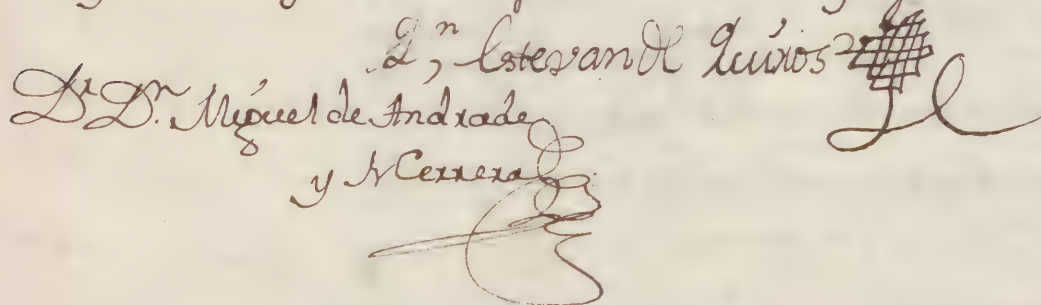 Dn, Estevan de Quiros
Dr Dn. Miguel de Andrade
y Herrera